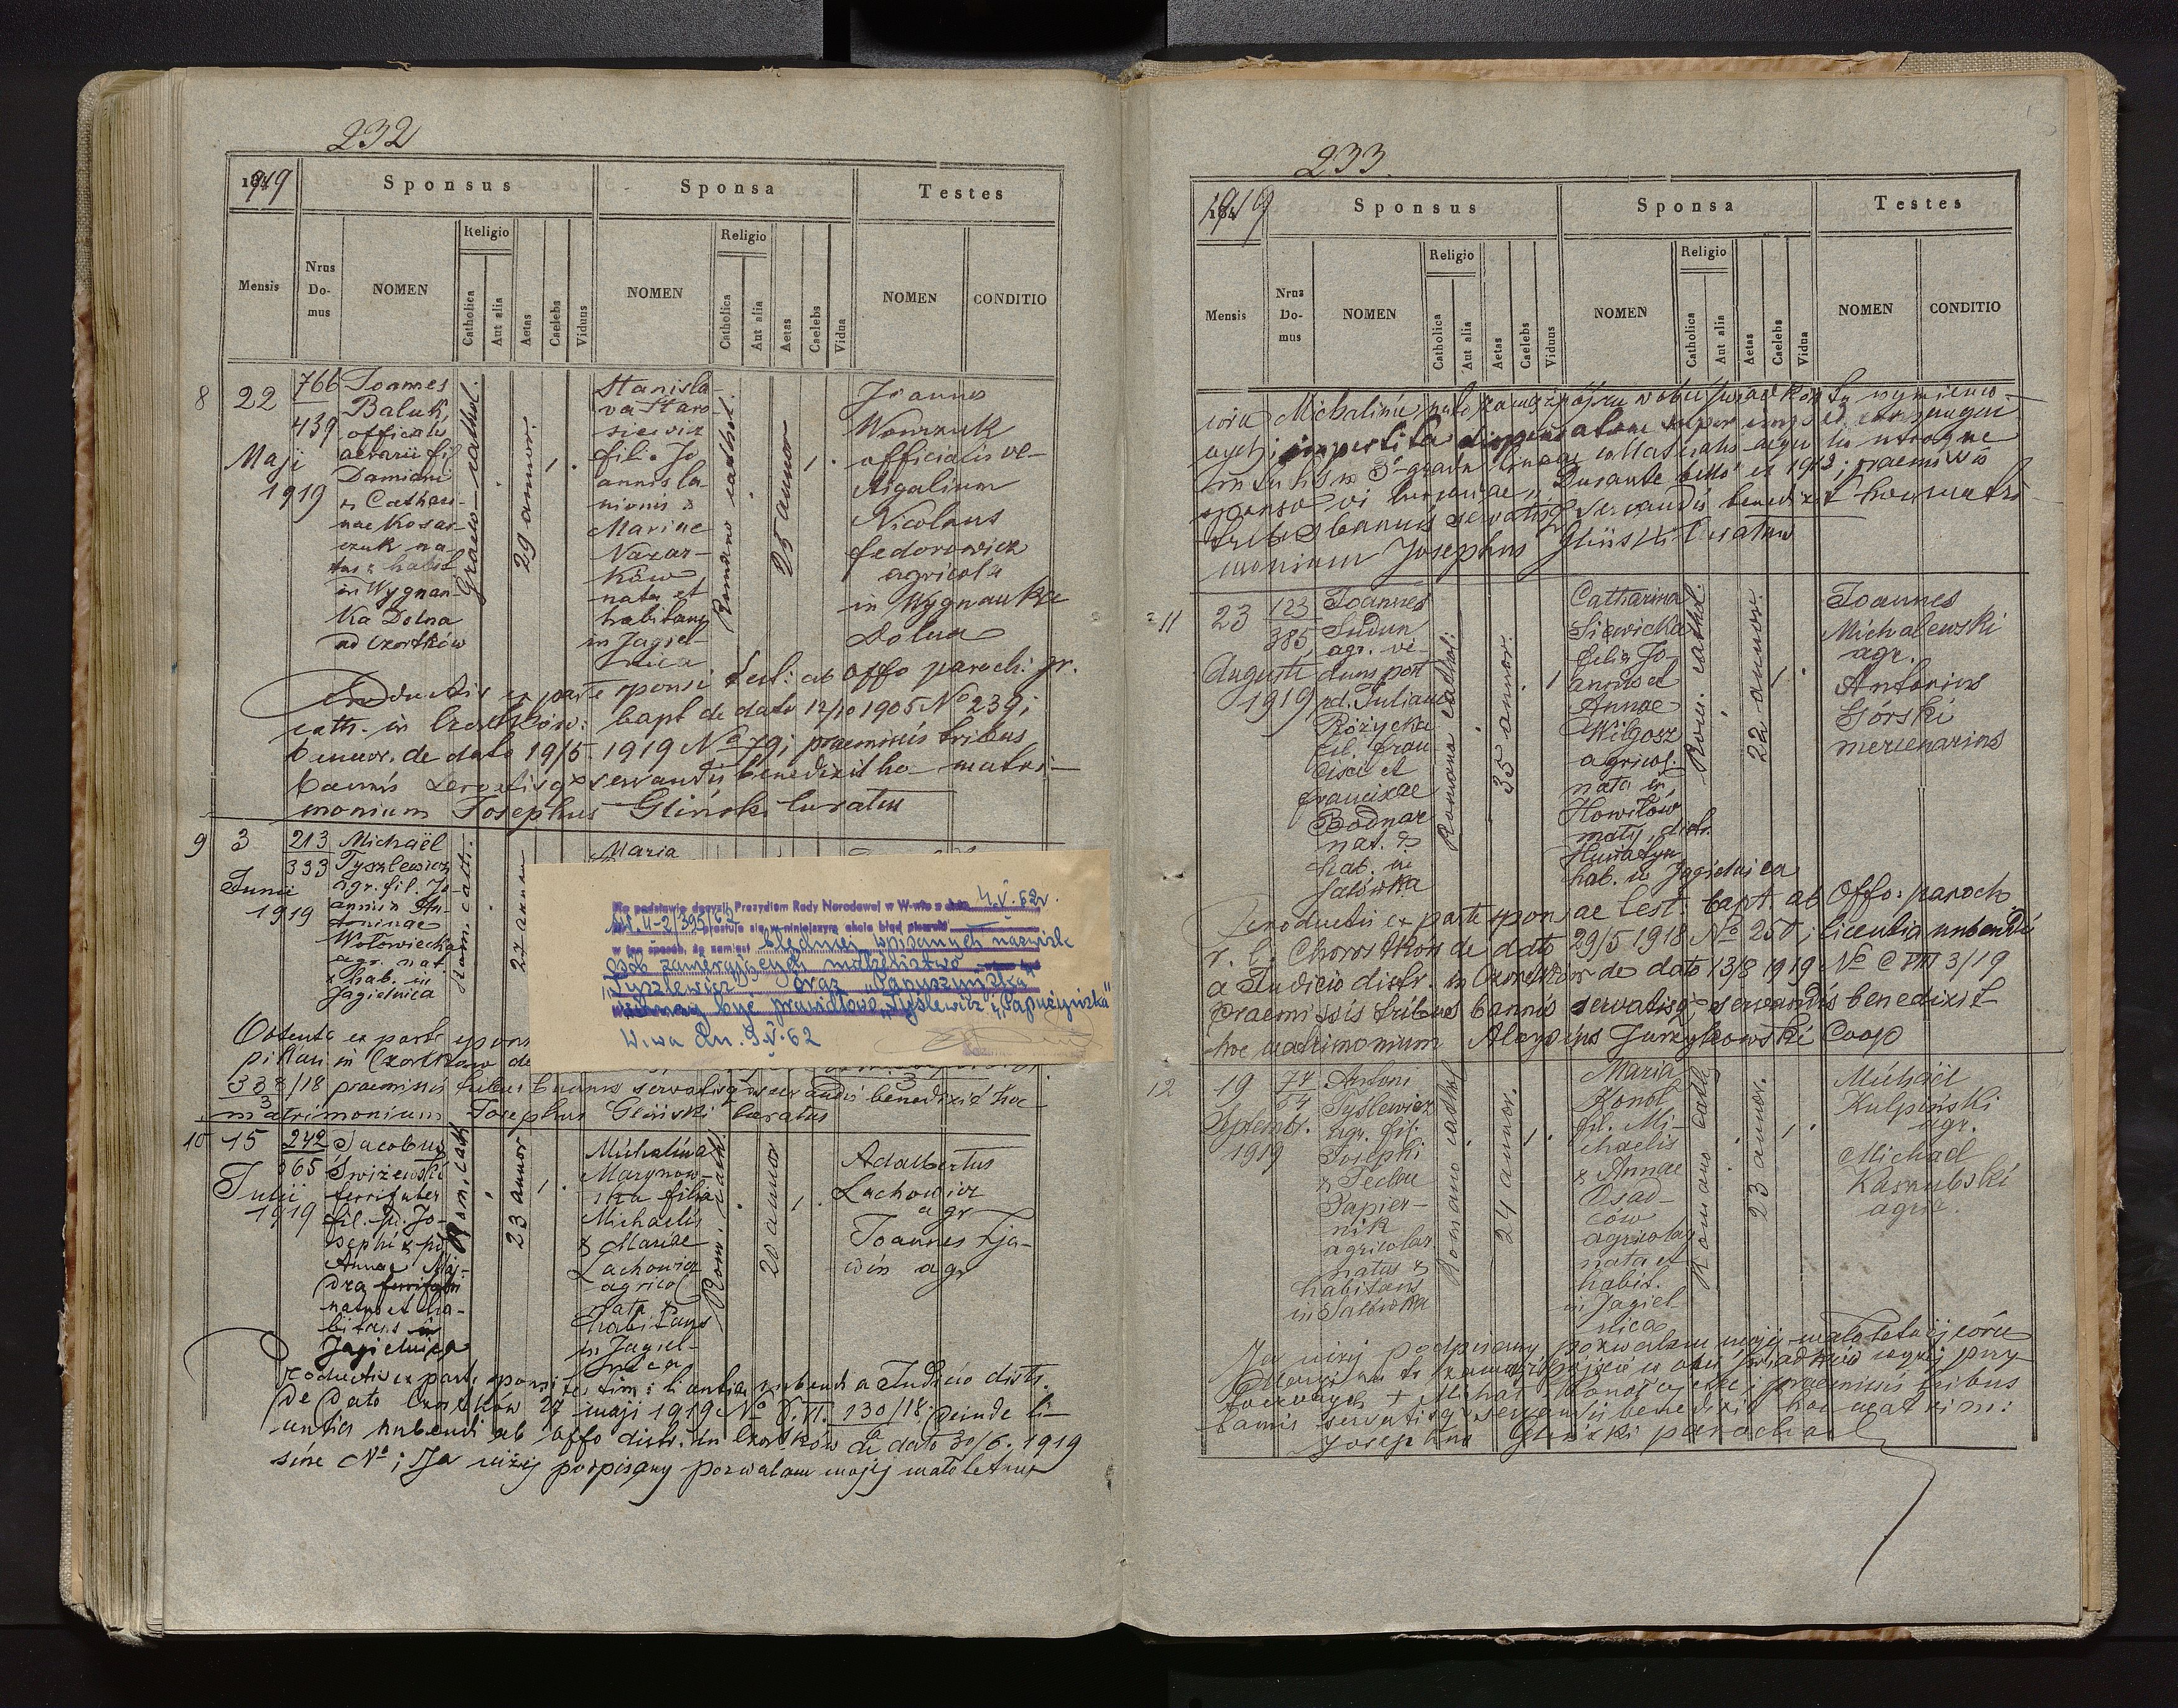 232
1919
Sponsus
Sponsa
Testes
Mensis
Nrus Do-mus
NOMEN
Religio
Catholica
Aut alia
Aetas
Caelebs
Viduus
NOMEN
Religio
Catholica
Aut alia
Aetas
Caelebs
Vidua
NOMEN
CONDITIO
8
22
Maji
1919
766
439
Joannes
Baluk
officialis
aerarii fil.
Damiani
& Cathari-
nae Kosar-
czuk na-
tus & habit
in Wygnan-
ka Dolna
ad Czortków
Graeco-cathol.
29 annor.
Stanisla-
va Staro-
siewicz
fil. Jo
annis la-
nionis &
Mariae
Nazar-
ków
nata et
habitans
in Jagiel-
nica
Romano cathol.
25 annor
Joannes
Wowrzuk
officialis ve-
ctigalium
Nicolaus
Fedorowicz
agricola
in Wygnanka
Dolna
Productis ex parte sponsi test: ab Offo paroch: gr.
cath. in Czortków: bapt de dato 12/10 1905 No 239;
bannor. de dato 19/5 1919 No 79; praemissis tribus
bannis servatisq servandis benedixit hoc matri-
monium Josephus Gliński Curatus
9
3
Junii
1919
213
393
Michaël
Tyszlewicz
agr. fil. Jo-
annis & An-
toninae
Wołowiecka
agr. nat.
& hab. in
Jagielnica
Rom. cath.
27 annor
Maria
Na podstawie decyzji Prezydium Rady Narodowej w W-wie z dnia 4.V.62r.
prostuje się w niniejszym akcie błąd pisarski
w ten sposób, że zamiast błędnej wpisanych nazwisk
osób zawierających małżeństwo
"Tyszlewicz" oraz "Papuszyńska"
być prawidłowo "Tyślewicz" i "Papużyńska"
W-wa dn. 9.V.62
Obtenta ex parte spons
pitan in Czortków de
338/18 praemissis tribus bannis servatisq servandis benedixit hoc
matrimonium Josephus Gliński Curatus
10
15
Julii
1919
242
365
Jacobus
Świżewski
ferrifaber
fil. pd. Jo-
sephi & pd.
Annae Maj-
dra
natus et ha-
bitans in
Jagielnica
Rom. cath
23 annor
Michalina
Marynow-
ska filia
Michaelis
& Mariae
Lachowicz
agricol
nata &
habitans
in Jagiel-
nica
Rom. cath.
20 annor
Adalbertus
Lachowicz
agr
Joannes Zja-
win agr
Productis ex parte sponsi licentia nubendi a Judicio distr.
de dato Czortków 27 maji 1919 No P.VI. 130/18; deinde li-
centia nubendi ab offo distr. in Czortków de dato 30/6. 1919
sine No; Ja niżej podpisany pozwalam mojej małoletniej
233.
1919
Sponsus
Sponsa
Testes
Mensis
Nrus Do-mus
NOMEN
Religio
Catholica
Aut alia
Aetas
Caelebs
Viduus
NOMEN
Religio
Catholica
Aut alia
Aetas
Caelebs
Vidua
NOMEN
CONDITIO
córce Michalinie
impertita dispensatione super imped. consanguin
in 3 gradu lineae collateralis aequalis utroque
sponso Durante bello et 1913; praemissis
tribus bannis servatisq servandis benedixit hoc matri
monium Josephus Gliński Curatus
11
23
Augusti
1919
123
385
Joannes
Sudun
agr. vi-
duus post
pd. Juliam
Różycka
fil. Fran-
cisci et
Franciscae
Bodnar
nat. &
hab. in
Salówka
Romana cathol:
35 annor.
Catharina
Siewicka
filia Jo-
annis et
Annae
Milgosz
agricol.
nata in
Howiłow
mały, distr
Husiatyn
hab. in Jagielnica
Rom. cathol.
22 annor.
Joannes
Michalewski
agr.
Antonius
Górski
mercenarius
Productis ex parte sponsae test. bapt. ab Offo: paroch
r. l. Chorostkow de dato 29/5 1918 No 250; licentia nubendi
a Judicio distr. in Czortków de dato 13/8 1919 No C VIII 3/19
Praemissis tribus bannis servatisq servandis benedixit
hoc matrimonium Aloysius Jurzykowski Coop
12
19
Septembr.
1919
74
54
Antoni
Tyślewicz
agr. fil.
Josephi
& Teclae
Papier-
nik
agricolar
natus &
habitans
in Salówka
Romano cathol
24 annor.
Maria
Konol
fil. Mi-
chaelis
& Annae
Osad-
ców
agricolar
nata et
habit.
in Jagiel
nica
Romano cath
23 annor.
Michaël
Kulpiński
agr.
Michaël
Kaszubski
agr.
Ja niżej podpisany pozwalam mojej małoletniej córce
Maryi na to zamążpójście w obec świadków wyżej przy-
toczonych + Michał Konol ojciec; praemissis tribus
bannis servatisq servandis benedixit hoc matrim:
Josephus Gliński parochus